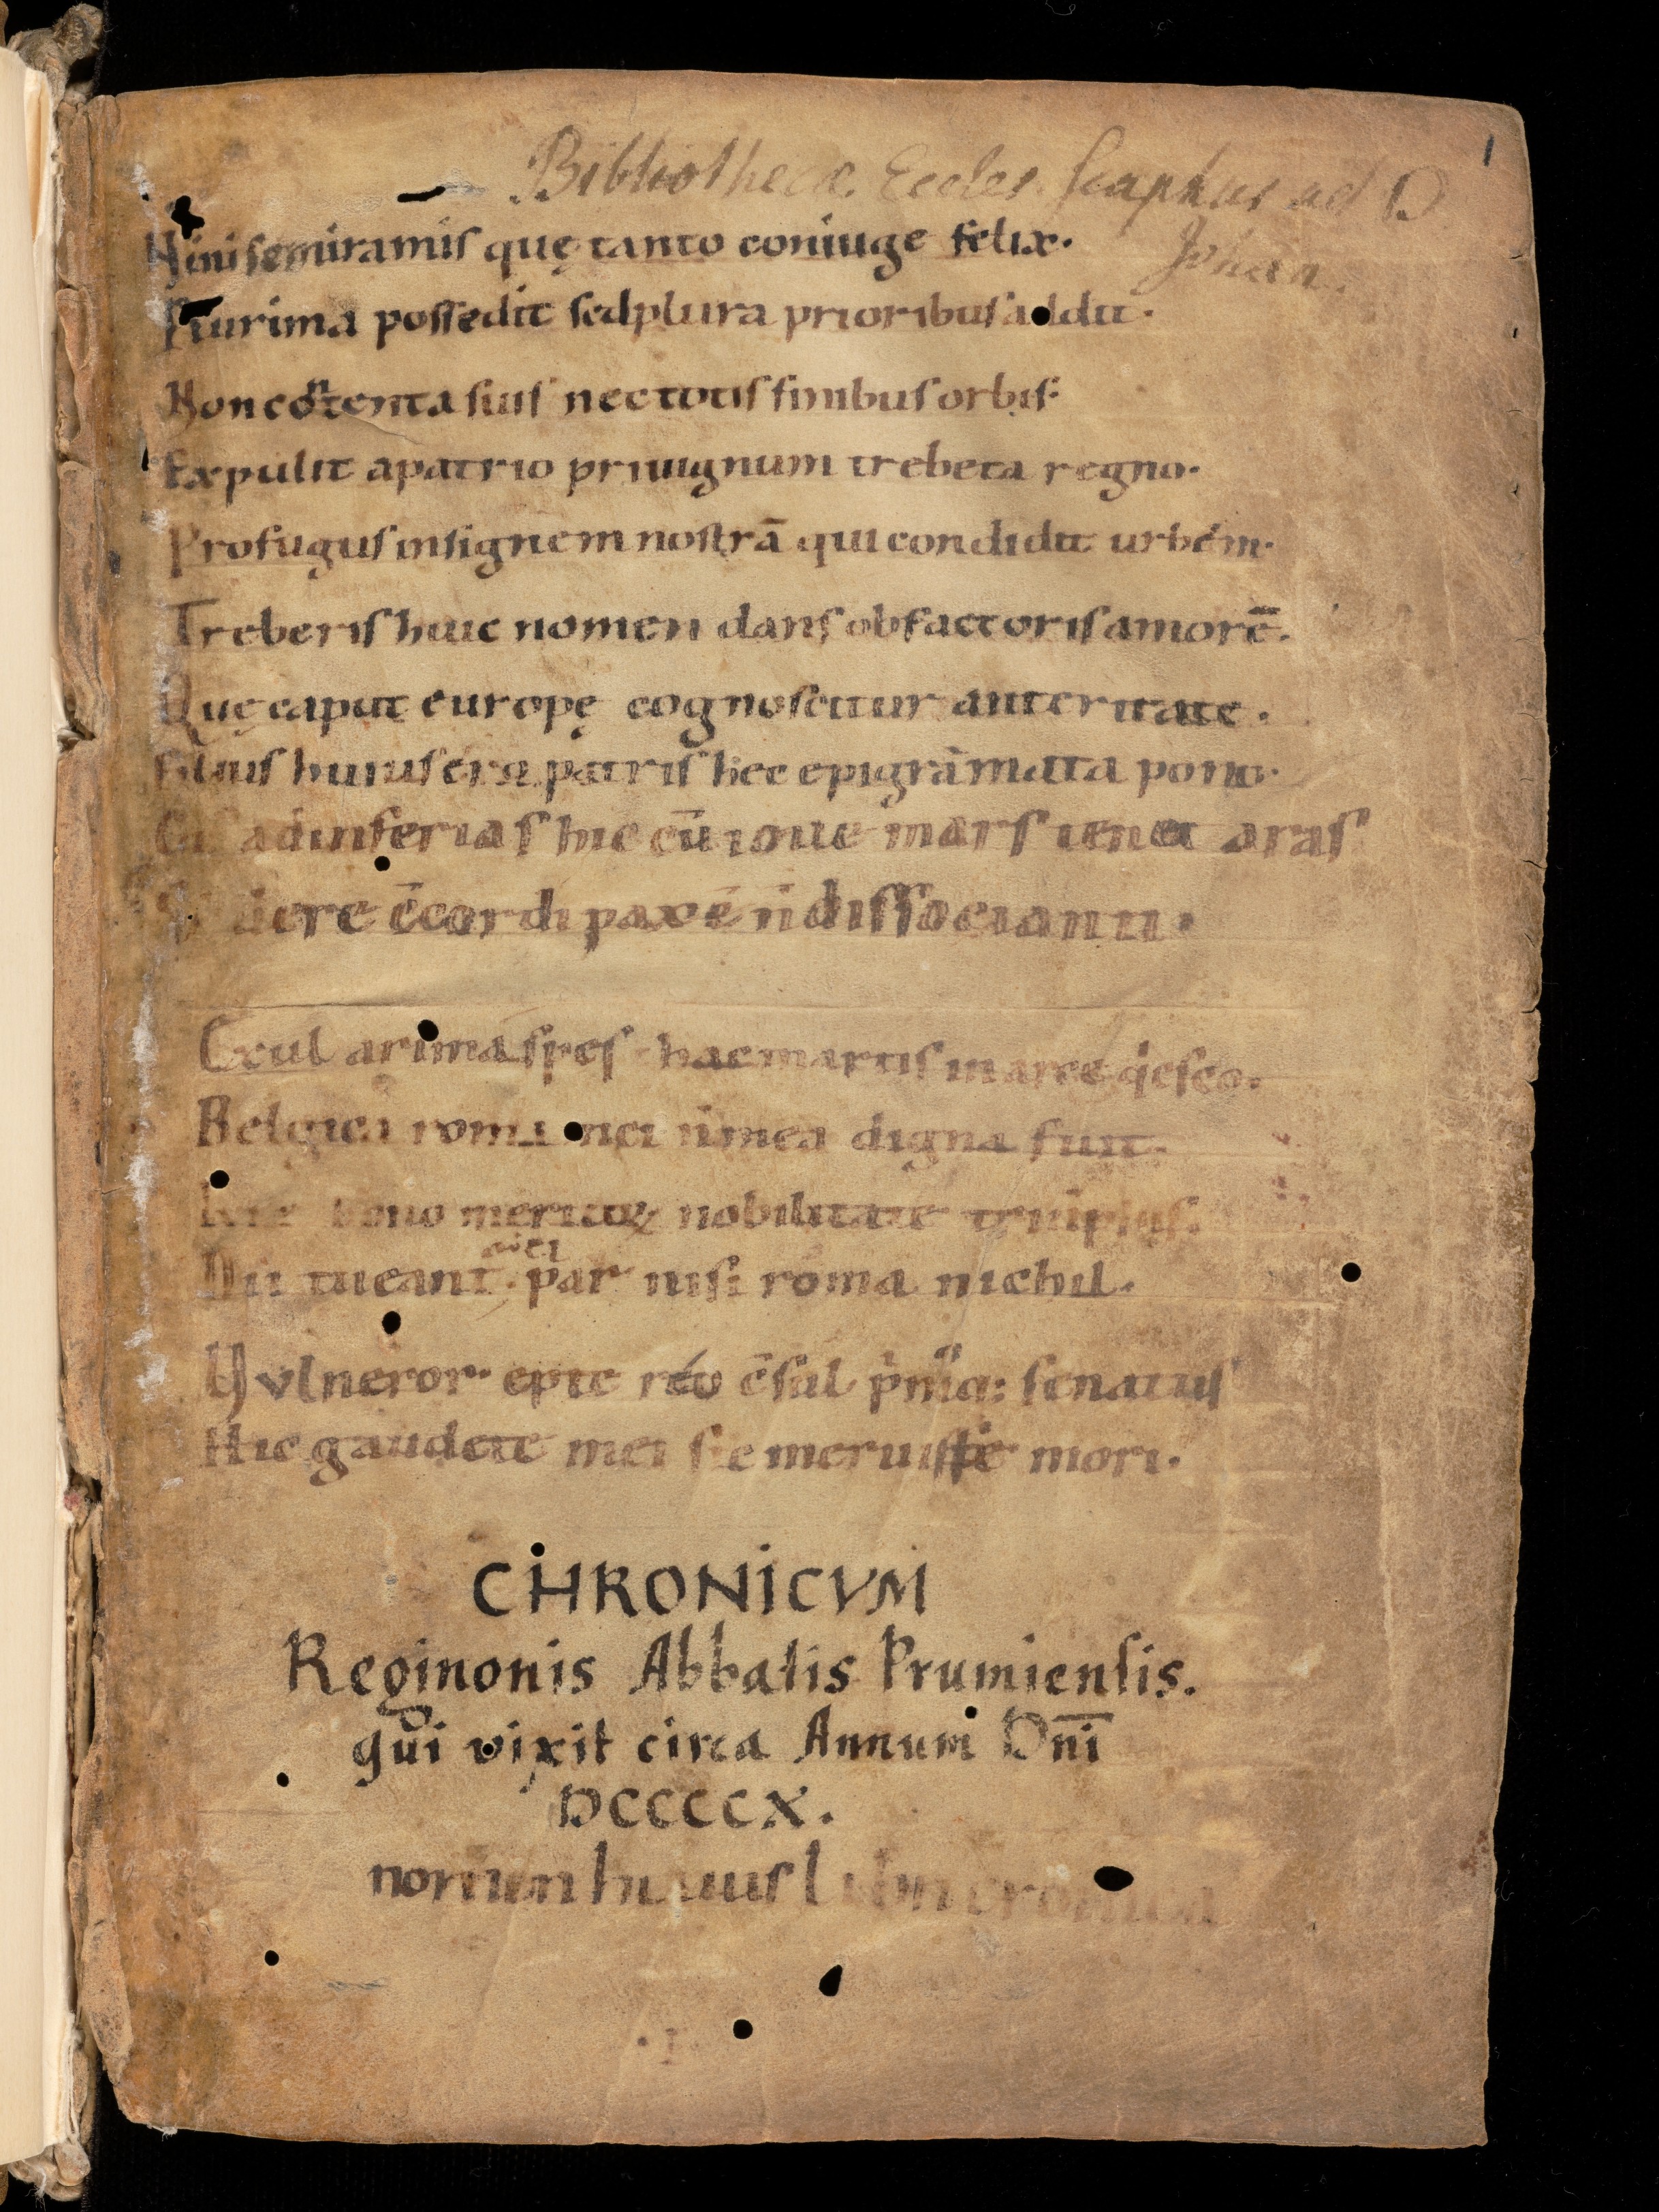 Bibliothecæ Eccles. Scaphus ad D
Johan.
1
Nini semiramis quę tanto coniuge felix.
Plurima possedit sed plura prioribus addit.
Non cōntenta suis nec totis finibus orbis.
Expulit a patrio priuignum trebeta regno.
Profugus insignem nostrā qui condidit urbem.
Treberis huic nomen dans ob factoris amorē.
Quę caput europę cognoscitur anteritate.
Filius huius era patris hec epigrāmata pono.
ad inferias hic cū ioue mars tenet aras
c̄cordi pax ē n̄ dissocianti.
Exul arimaspes hac martis in arce q̇esco.
Belgica roma mei n̄ mea digna fuit.
merito & nobilitate
Dii tueant. par nisi roma nichil.
Vvlneror. epte reo c̄sul senatus
Hic gaudete mei sic meruisse mori.
CHRONICVM
Reginonis Abbatis Prumiensis.
qui vixit circa Annum Dn̄i
DCCCCX.
nomen huiuus libri cronica
.I.